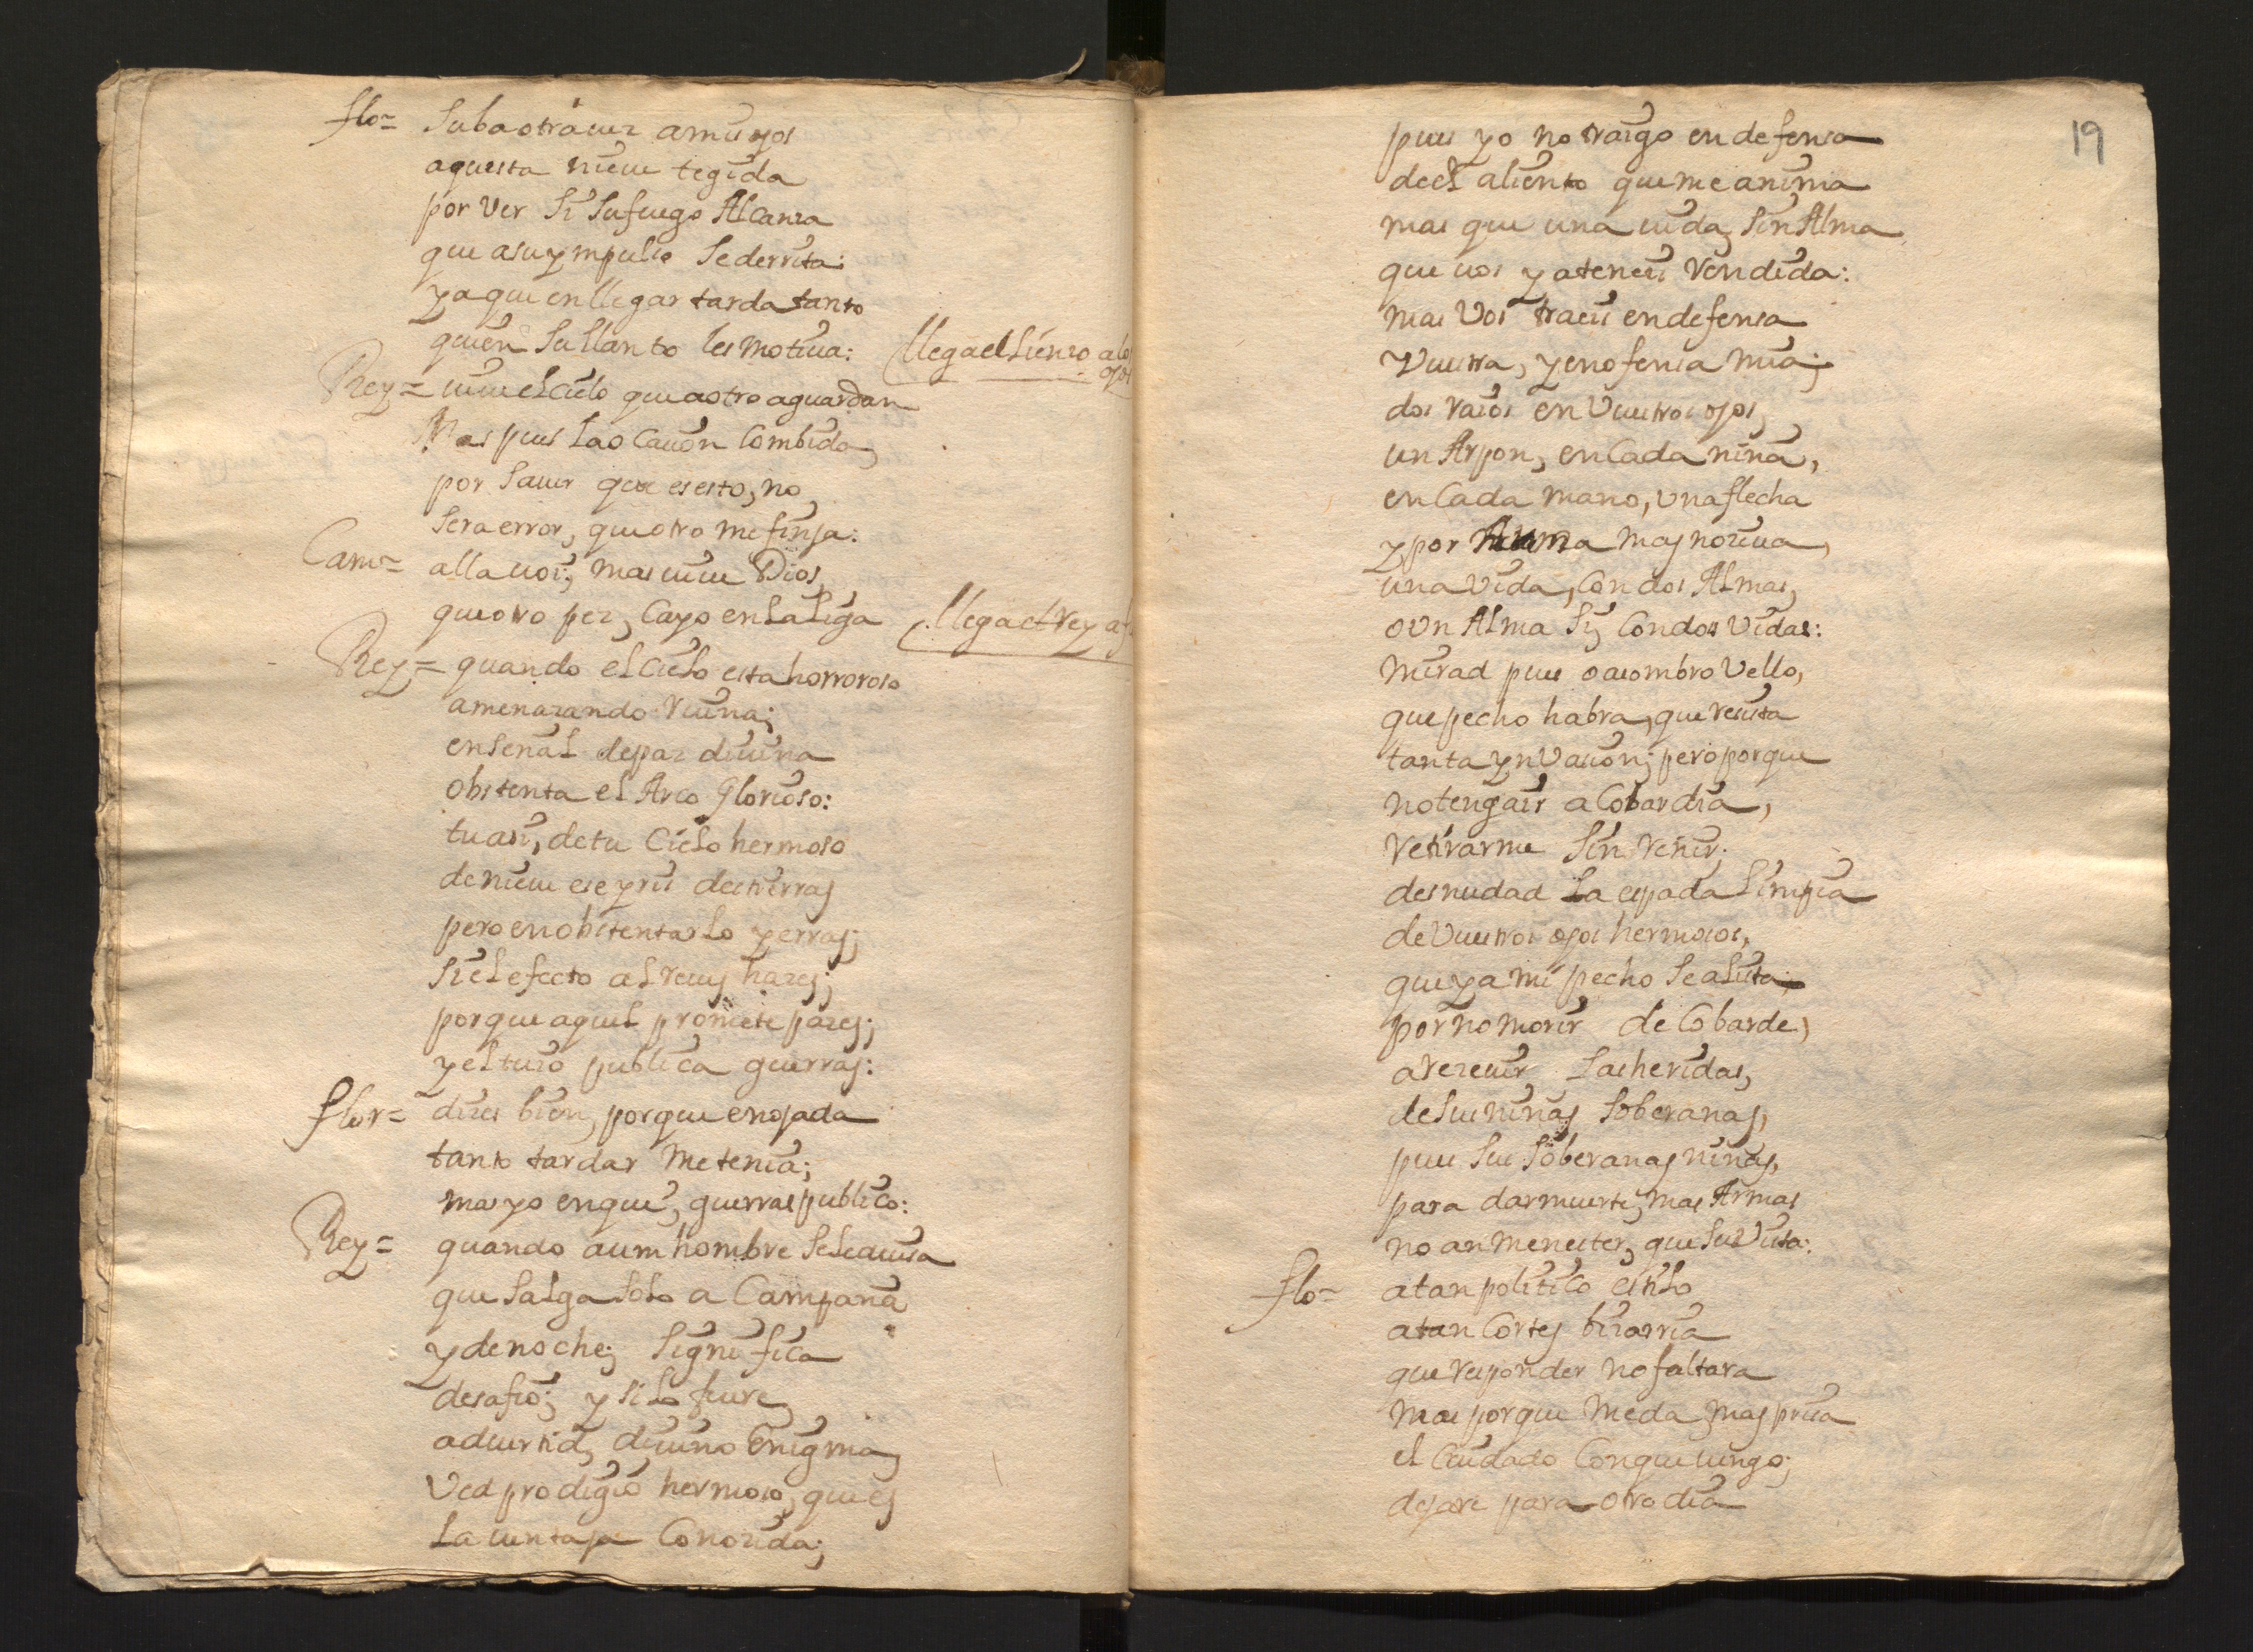 flo= Suba otra uez a mis ojos
aquesta nieue tegida
por ver si su fuego Alcanza
que a su ympulso se derrita:
ya que en llegar tarda tanto
quien su llanto les motiua: (llega el lienzo a los ojos
Rey= uiue el cielo que a otro aguardan
Mas pues la ocasion combida,
por sauer que es esto, no
sera error, que otro me finja:
Cam= alla uoi; mas uiue Dios,
que otro pez, cayo en la liga (llega el rey a f
Rey= quando el cielo esta horroroso
amenazando ruina;
en señal de paz diuina
obstenta el Arco Glorioso:
tu asi, de tu cielo hermoso
de nieue ese yris destierras
pero en obstentarlo yerras;
si el efecto al reues hazes;
porque aquel promete pazes;
y el tuio publica guerras:
flor= dizes bien, porque enojada
tanto tardar me tenia;
mas yo en que, guerras publico:
Rey= quando a um hombre se le auisa
que salga solo a Campaña
y de noche; significa
desafio; y si lo fuere
aduertid, diuino enigma,
Ved prodigio hermoso, que es
la uentaja conozida;
19
pues yo no traigo en defensa
de el aliento que me anima
mas que una uida, sin Alma
que uos ya teneis rendida:
mas Vos traeis en defensa
Vuestra, y en ofensa mia;
dos raios en Vuestros ojos,
un Arpon, en cada niña,
en cada mano, una flecha
y por mas noziua,
una vida, con dos Almas,
o un Alma si, con dos vidas:
mirad pues o asombro Vello,
que pecho habra, que resista
tanta ynvasion; pero porque
no tengais a cobardia,
retirarme sin reñir;
desnudad la espada limpia
de Vuestros ojos hermosos,
que ya mi pecho se alista;
por no morir de cobarde,
a rezeuir las heridas,
de sus niñas soberanas,
pues sus soberanas niñas,
para dar muerte, mas Armas
no an menester, que su vista:
flo= a tan politico estilo
a tan cortes bizarria
que responder no faltara
mas porque me da mas prisa
el cuidado con que uengo;
dejare para otro dia